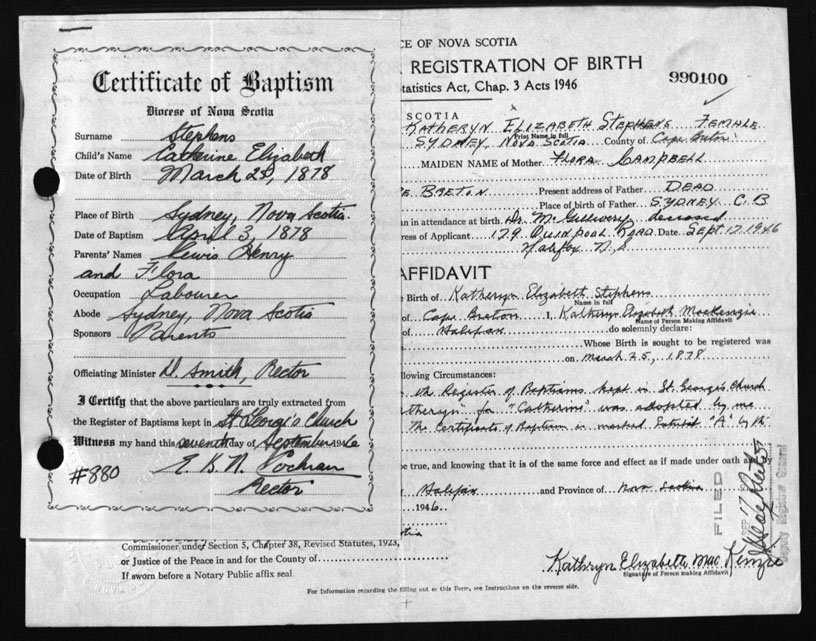 Certificate of Baptism
Diocese of Nova Scotia
Surname Stephens
Child's Name Catherine Elizabeth
Date of Birth March 25, 1878
Place of Birth Sydney, Nova Scotia.
Date of Baptism April 3, 1878
Parents' Names Lewis Henry
and Flora
Occupation Labourer
Abode Sydney, Nova Scotia
Sponsors Parents
Officiating Minister D. Smith, Rector
I Certify that the above particulars are truly extracted from
the Register of Baptisms kept in St George's Church
Witness my hand this seventh day of September 1946
E. B. N. Cochran
Rector
#880
CE OF NOVA SCOTIA
REGISTRATION OF BIRTH
990100
tatistics Act, Chap. 3 Acts 1946
SCOTIA
KATHERYN ELIZABETH STEPHENS FEMALE
Print Name in full
SYDNEY, NOVA SCOTIA County of Cape Breton
MAIDEN NAME of Mother FLORA CAMPBELL
E BRETON Present address of Father DEAD
Place of birth of Father SYDNEY C.B
an in attendance at birth Dr. McGillivery, deceased
ress of Applicant 179 Quinpool Road Date Sept 17 1946
Halifax N.S
AFFIDAVIT
e Birth of Katheryn Elizabeth Stephens
Name in full
of Cape Breton I, Katheryn Elizabeth MacKenzie
Name of Person Making Affidavit
of Halifax do solemnly declare:
Whose Birth is sought to be registered was
on March 25, 1878
llowing Circumstances:
the Register of Baptisms kept in St. George's Church
theryn for "Catherine" was adopted by me
The Certificate of Baptism is marked Exhibit "A" by the
be true, and knowing that it is of the same force and effect as if made under oath and
Halifax and Province of Nova Scotia
1946.
otia
FILED
SEP 17
Deputy Registrar General
Commissioner under Section 5, Chapter 38, Revised Statutes, 1923,
or Justice of the Peace in and for the County of
If sworn before a Notary Public affix seal.
Kathryn Elizabeth Mac Kenzie
Signature of Person making Affidavit
For Information regarding the filling out of this Form, see Instructions on the reverse side.